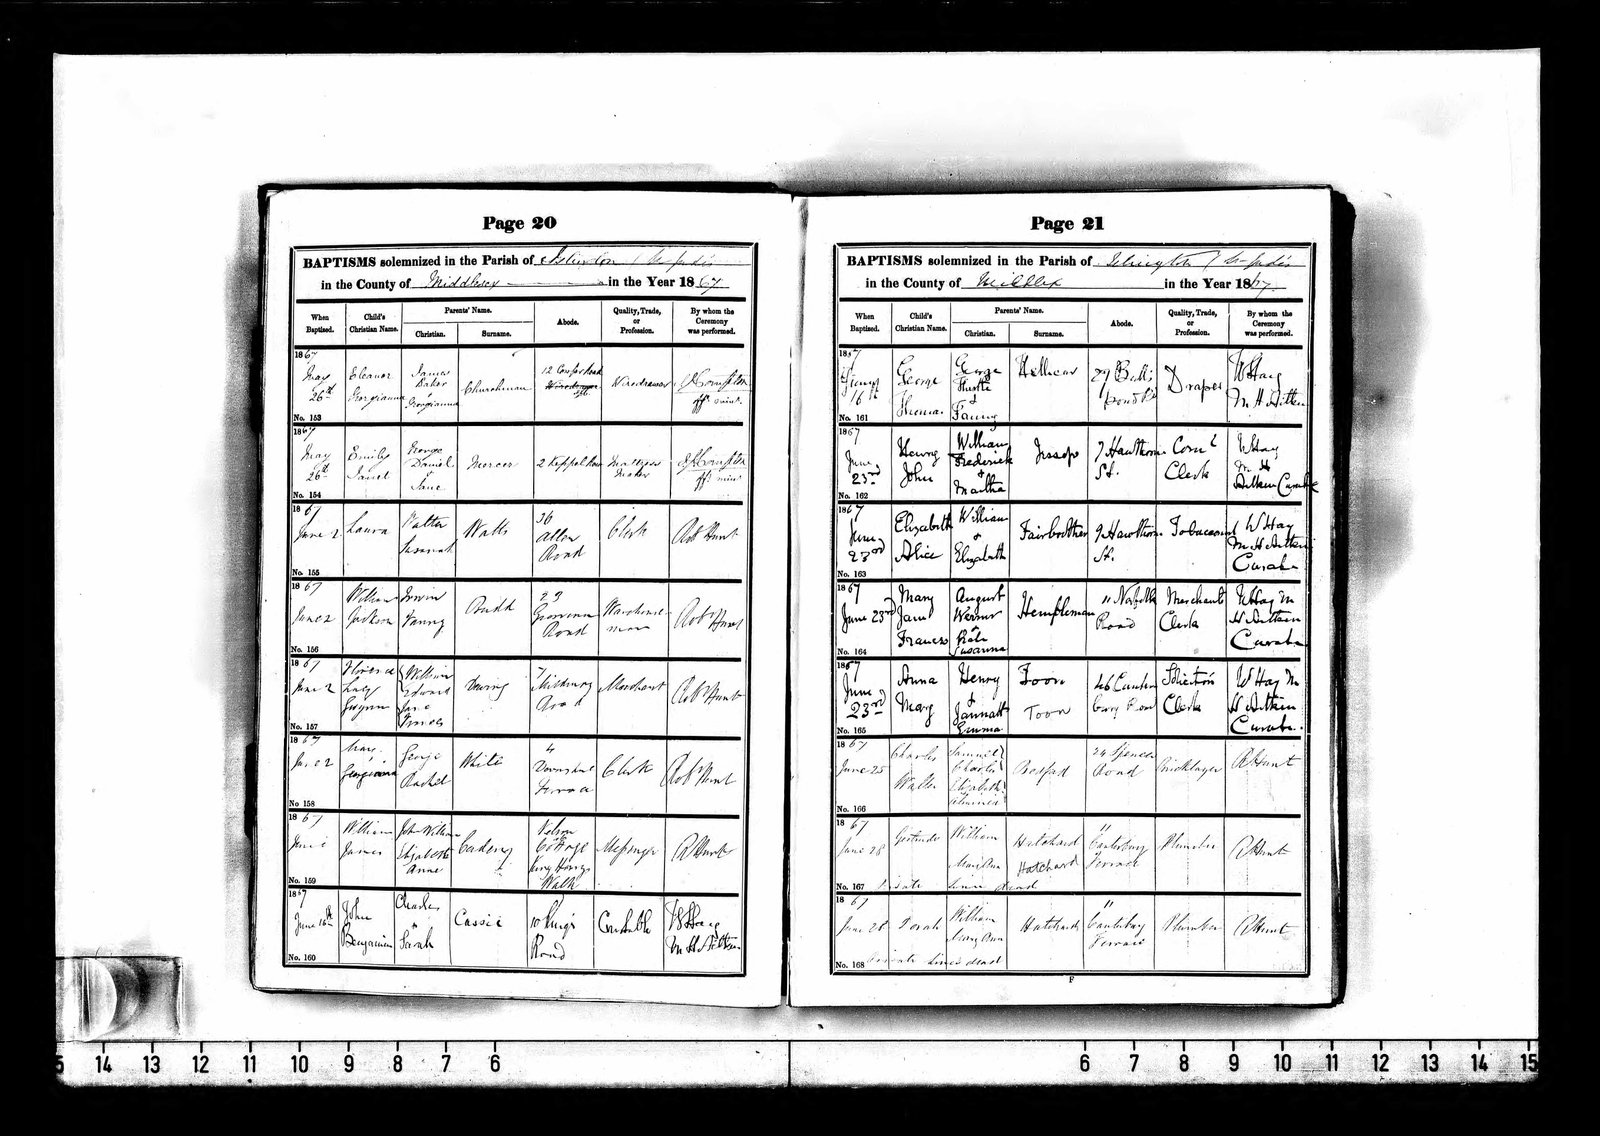 Page 20
BAPTISMS solemnized in the Parish of Islington
in the County of Middlesex in the Year 1867
When Baptized.
Child's Christian Name.
Parents' Name.
Christian.
Surname.
Abode.
Quality, Trade, or Profession.
By whom the Ceremony was performed.
1867
May
26th
No. 153
Eleanor
Georgianna
James
Baker
&
Georgianna
Churchman
12
Wiredrawer
1867
May
26th
No. 154
Emily
Janet
George
Daniel
Jane
Mercer
2 Keppel Row
Mattress
Maker
1867
June 2
No. 155
Laura
Walter
Susannah
Watts
36
Allen
Road
Clerk
Robt Hunt
1867
June 2
No. 156
William
Jackson
Fanny
Budd
Grosvenor
Road
Warehouse
man
Robt Hunt
1867
June 2
No. 157
Florence
Lucy
William
Edward
Jane
Frances
7
Mildmay
Road
Merchant
Robt Hunt
1867
June 2
No. 158
Mary
Georgianna
George
Rachel
White
4
Devonshire
Terrace
Clerk
Robt Hunt
1867
June
No. 159
William
James
John William
Elizabeth
Anne
Nelson
Cottage
King Henrys
Walk
Messenger
R Hunt
1867
June 16th
No. 160
John
Benjamin
Charles
&
Sarah
Cassie
10 King's
Road
Constable
W Hay
M H Aitken
Page 21
BAPTISMS solemnized in the Parish of Islington
in the County of Middlesex in the Year 1867
When Baptized.
Child's Christian Name.
Parents' Name.
Christian.
Surname.
Abode.
Quality, Trade, or Profession.
By whom the Ceremony was performed.
1867
June
16th
No. 161
George
Thomas
George
&
Fanny
29 Balls
Pond Rd
Draper
W Hay
M H Aitken
1867
June
23rd
No. 162
Henry
John
William
Frederick
&
Martha
Jessop
7 Hawthorne
St.
Coml
Clerk
W Hay
M H
Aitken Curate
1867
June
23rd
No. 163
Elizabeth
Alice
William
&
Elizabeth
Fairbrother
9 Hawthorn
St.
Tobacconist
W Hay
M H Aitken
Curate
1867
June 23rd
No. 164
Mary
Jane
Frances
August
Werner
&
Kate
Susanna
Hempleman
11 Norfolk
Road
Merchants
Clerk
W Hay M
H Aitken
Curate
1867
June
23rd
No. 165
Anna
Mary
Henry
&
Jannatt
Emma
Toon
Toon
46 Canter
bury Road
Solicitors
Clerk
W Hay M
H Aitken
Curate.
1867
June 25
No. 166
Charles
Walter
Samuel
Charles
Elizabeth
24 Spencer
Road
Bricklayer
R Hunt
1867
June 28
No. 167
Gertrude
William
Mary Ann
Hatchard
Hatchard
11
Canterbury
Terrace
Plumber
R Hunt
Private since dead
1867
June 28
No. 168
Norah
William
Mary Ann
Hatchard
11
Canterbury
Terrace
Plumber
R Hunt
Private since dead
F
15 14 13 12 11 10 9 8 7 6
6 7 8 9 10 11 12 13 14 15